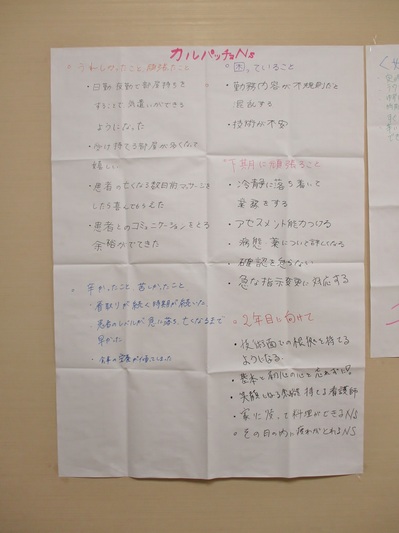 カルパッチョNs
○うれしかったこと 頑張ったこと
・日勤夜勤で部屋持ちを
することで気遣いができる
ようになった
・受け持てる部屋が多くなって
嬉しい
・患者の亡くなる数日前マッサージを
したら喜んでもらえた
・患者とのコミュニケーションをとる
余裕ができてきた
○辛かったこと 苦しかったこと
・看取りが続く時期が続いた
・患者のレベルが急に落ち、亡くなるまで
早かった
○困っていること
・勤務内容が不規則だと
混乱する
・技術が不安
下期に頑張ること
・冷静に落ち着いて
業務をする
・アセスメント能力つける
・病態、薬について詳しくなる
・確認を怠らない
・急な指示変更に対応する
○2年目に向けて
・後術面での根拠を持てる
ようになる
・基本と初心の心を忘れずに
持てる看護師
・家に戻って料理ができるNS
・その日の内に疲れがとれるNS